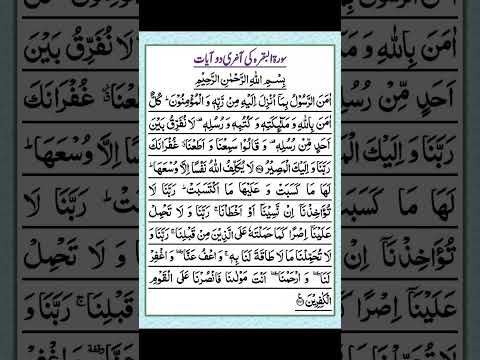 سورۃ البقرہ کی آخری دو آیات
بِسْمِ اللهِ الرَّحْمٰنِ الرَّحِيْمِ
اٰمَنَ الرَّسُوْلُ بِمَآ اُنْزِلَ اِلَيْهِ مِنْ رَّبِّهٖ وَ الْمُؤْمِنُوْنَ ؕ كُلٌّ
اٰمَنَ بِاللهِ وَ مَلٰٓئِكَتِهٖ وَ كُتُبِهٖ وَ رُسُلِهٖ ۫ لَا نُفَرِّقُ بَيْنَ
اَحَدٍ مِّنْ رُّسُلِهٖ ۫ وَ قَالُوْا سَمِعْنَا وَ اَطَعْنَا ٭۫ غُفْرَانَكَ
رَبَّنَا وَ اِلَيْكَ الْمَصِيْرُ ﴿۲۸۵﴾ لَا يُكَلِّفُ اللهُ نَفْسًا اِلَّا وُسْعَهَا ؕ
لَهَا مَا كَسَبَتْ وَ عَلَيْهَا مَا اكْتَسَبَتْ ؕ رَبَّنَا لَا
تُؤَاخِذْنَاۤ اِنْ نَّسِيْنَاۤ اَوْ اَخْطَاْنَا ۚ رَبَّنَا وَ لَا تَحْمِلْ
عَلَيْنَاۤ اِصْرًا كَمَا حَمَلْتَهٗ عَلَى الَّذِيْنَ مِنْ قَبْلِنَا ۚ رَبَّنَا وَ
لَا تُحَمِّلْنَا مَا لَا طَاقَةَ لَنَا بِهٖ ۚ وَ اعْفُ عَنَّا ٝ وَ اغْفِرْ
لَنَا ٝ وَ ارْحَمْنَا ٝ اَنْتَ مَوْلٰىنَا فَانْصُرْنَا عَلَى الْقَوْمِ
الْكٰفِرِيْنَ ﴿۲۸۶﴾